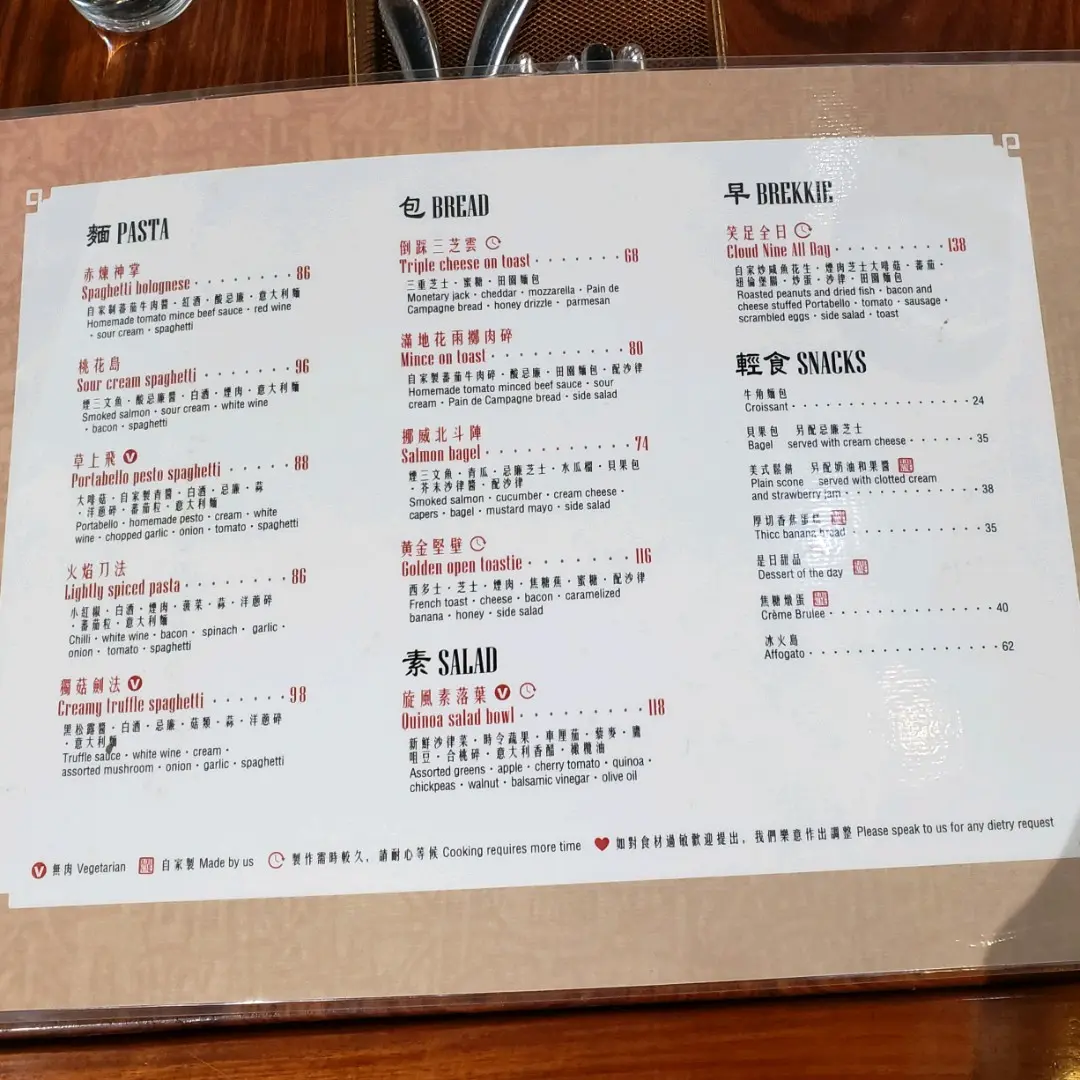 麵 PASTA
赤煉神掌
Spaghetti bolognese 86
自家制蕃茄牛肉醬・紅酒・酸忌廉・意大利麵
Homemade tomato mince beef sauce・red wine
・sour cream・spaghetti
桃花島
Sour cream spaghetti 96
煙三文魚・酸忌廉醬・白酒・煙肉・意大利麵
Smoked salmon・sour cream・white wine
・bacon・spaghetti
草上飛 V
Portabello pesto spaghetti 88
大啡菇・自家製青醬・白酒・忌廉・蒜
・洋蔥碎・蕃茄粒・意大利麵
Portabello・homemade pesto・cream・white
wine・chopped garlic・onion・tomato・spaghetti
火焰刀法
Lightly spiced pasta 86
小紅椒・白酒・煙肉・菠菜・蒜・洋蔥碎
・蕃茄粒・意大利麵
Chilli・white wine・bacon・spinach・garlic・
onion・tomato・spaghetti
獨菇劍法 V
Creamy truffle spaghetti 98
黑松露醬・白酒・忌廉・菇類・蒜・洋蔥碎
・意大利麵
Truffle sauce・white wine・cream・
assorted mushroom・onion・garlic・spaghetti
包 BREAD
倒踩三芝雲
Triple cheese on toast 68
三重芝士・蜜糖・田園麵包
Monetary jack・cheddar・mozzarella・Pain de
Campagne bread・honey drizzle・parmesan
滿地花雨擲肉碎
Mince on toast 80
自家製蕃茄牛肉碎・酸忌廉・田園麵包・配沙律
Homemade tomato minced beef sauce・sour
cream・Pain de Campagne bread・side salad
挪威北斗陣
Salmon bagel 74
煙三文魚・青瓜・忌廉芝士・水瓜榴・貝果包
・芥末沙律醬・配沙律
Smoked salmon・cucumber・cream cheese・
capers・bagel・mustard mayo・side salad
黃金堅壁
Golden open toastie 116
西多士・芝士・煙肉・焦糖蕉・蜜糖・配沙律
French toast・cheese・bacon・caramelized
banana・honey・side salad
素 SALAD
旋風素落葉 V
Quinoa salad bowl 118
新鮮沙律菜・時令蔬果・車厘茄・藜麥・鷹
咀豆・合桃碎・意大利香醋・橄欖油
Assorted greens・apple・cherry tomato・quinoa・
chickpeas・walnut・balsamic vinegar・olive oil
早 BREKKIE
笑足全日
Cloud Nine All Day 138
自家炒咸魚花生・煙肉芝士大啡菇・蕃茄・
紐倫堡腸・炒蛋・沙律・田園麵包
Roasted peanuts and dried fish・bacon and
cheese stuffed Portabello・tomato・sausage・
scrambled eggs・side salad・toast
輕食 SNACKS
牛角麵包
Croissant 24
貝果包 另配忌廉芝士
Bagel served with cream cheese 35
美式鬆餅 另配奶油和果醬
Plain scone served with clotted cream
and strawberry jam 38
厚切香蕉蛋糕
Thicc banana bread 35
是日甜品
Dessert of the day
焦糖燉蛋
Crème Brulee 40
冰火島
Affogato 62
V 無肉 Vegetarian 自家製 Made by us 製作需時較久，請耐心等候 Cooking requires more time 如對食材過敏歡迎提出，我們樂意作出調整 Please speak to us for any dietry request